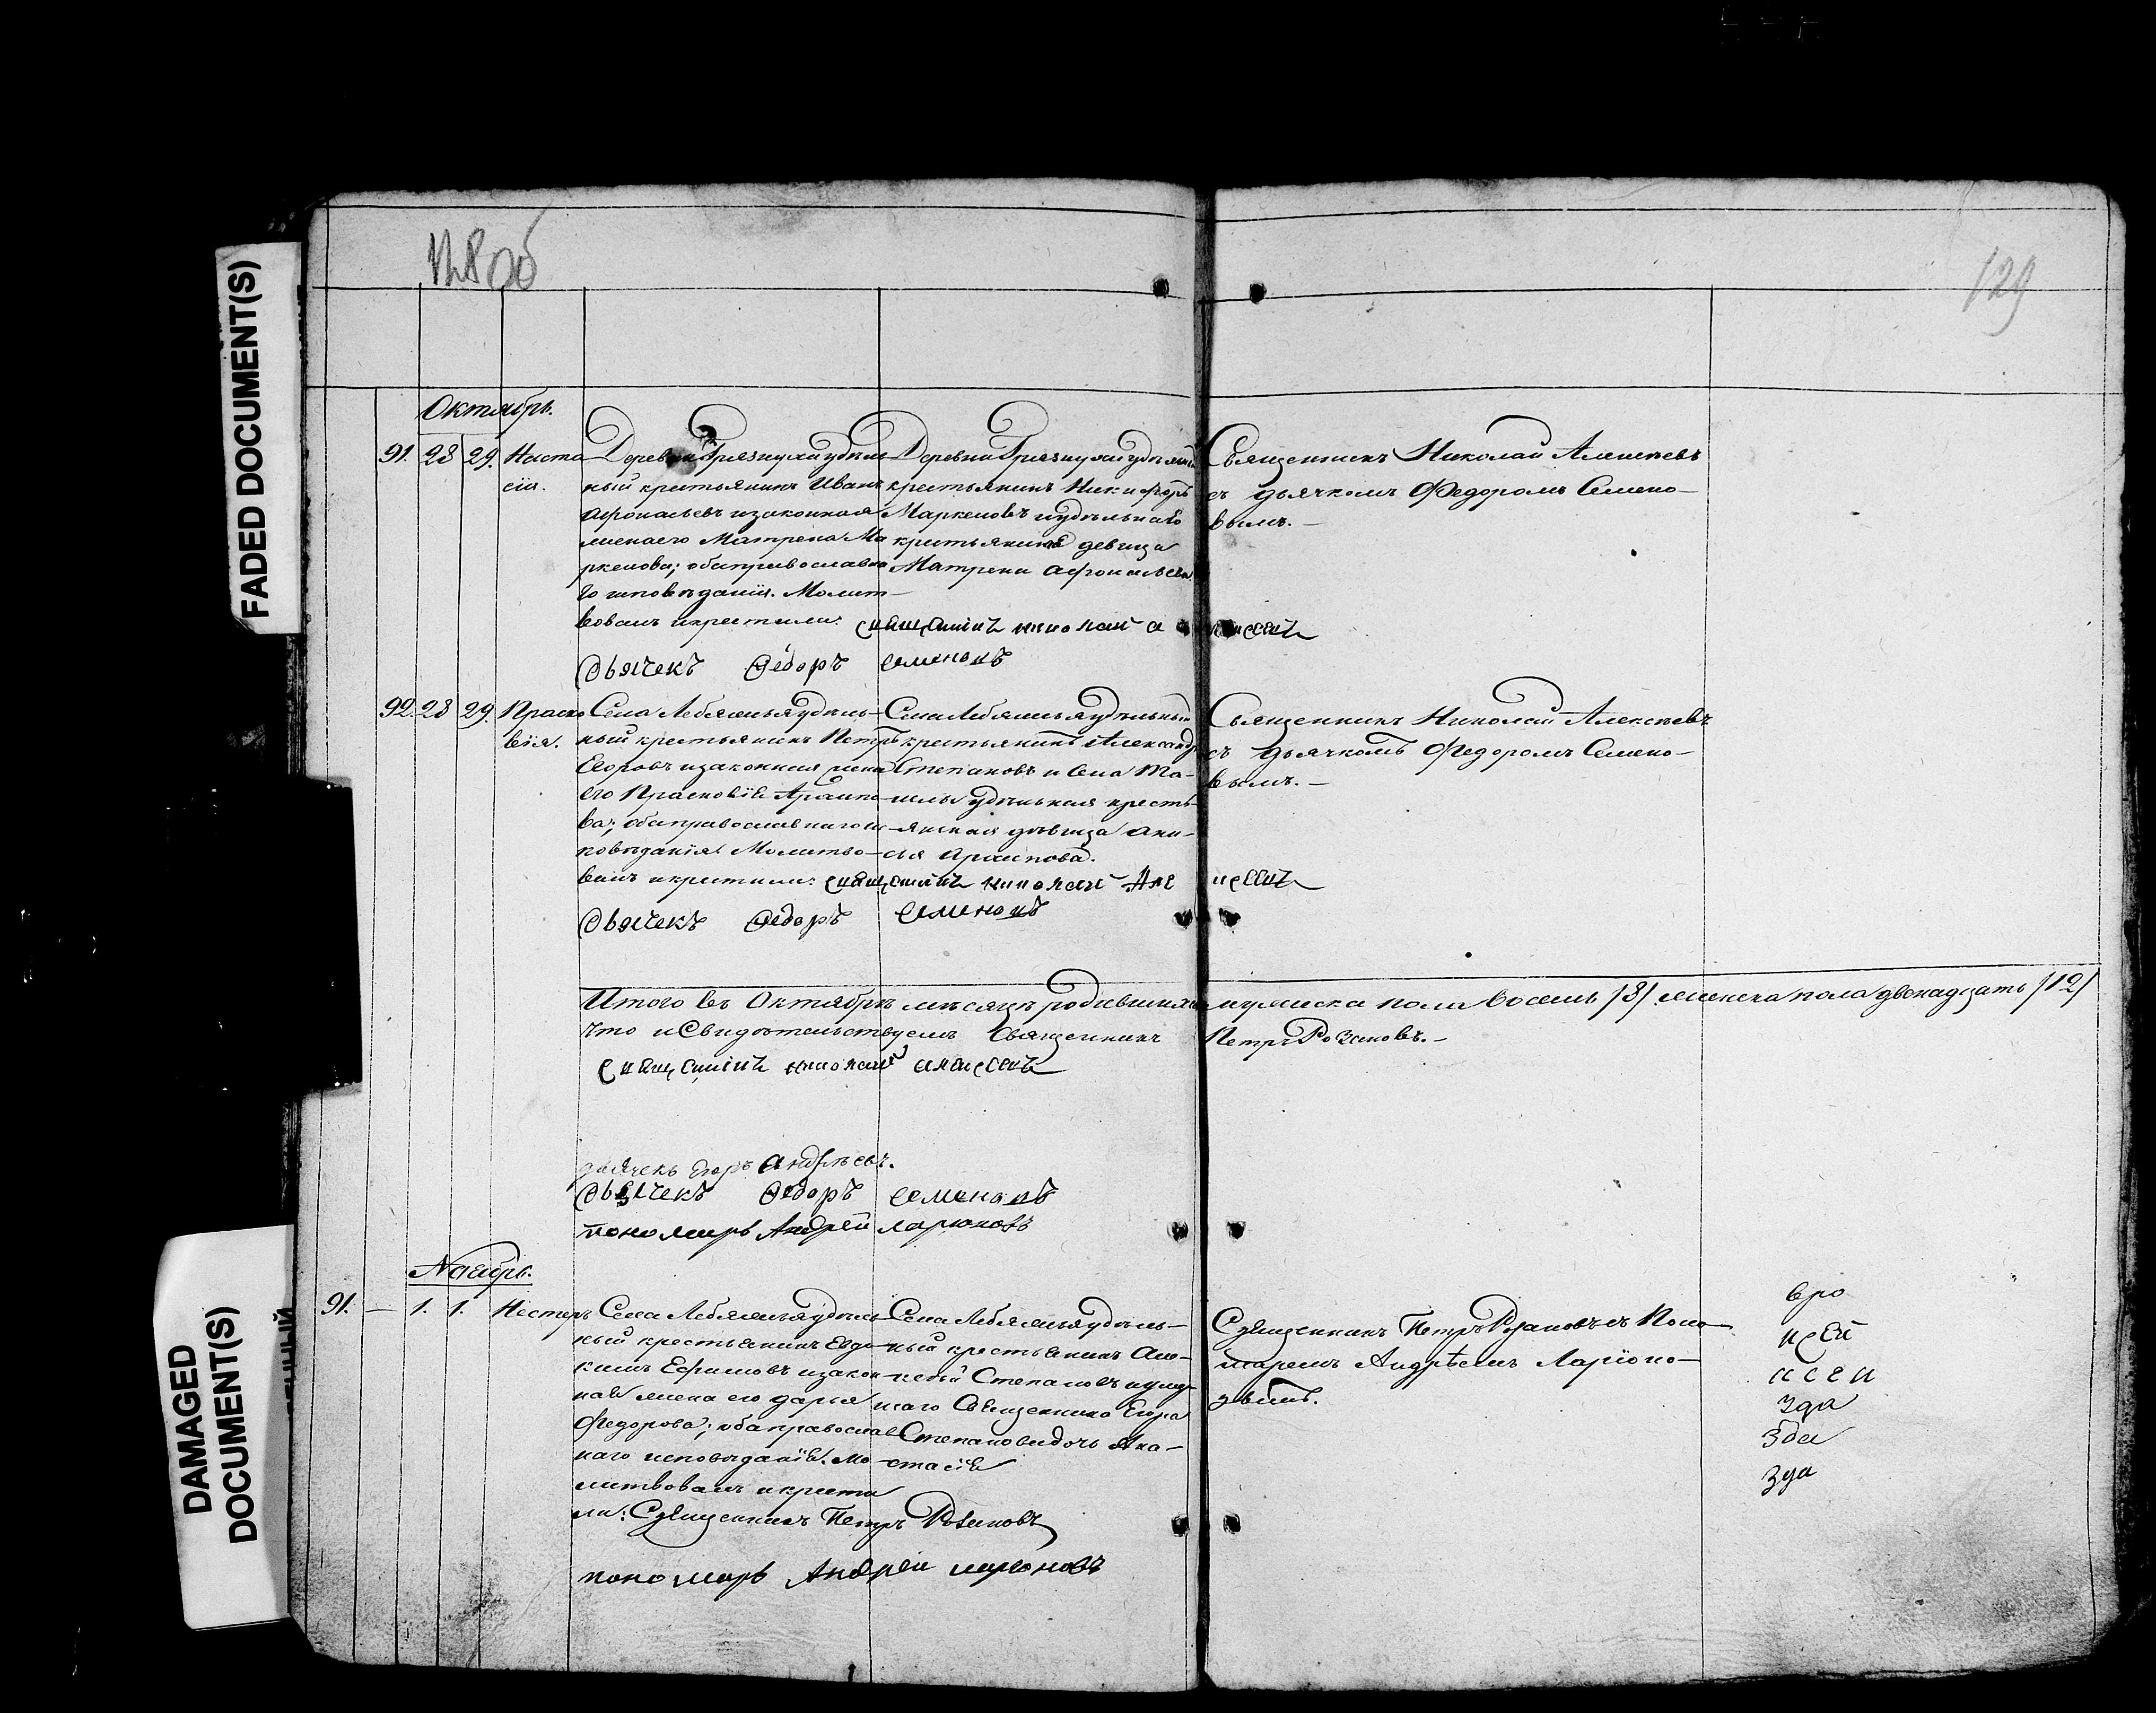 FADED DOCUMENT(S)
DAMAGED
DOCUMENT(S)
128об
129
Октябрь.
91. 28 29. Наста
сія.
Деревни Грязнухи удѣль
ный крестьянинъ Иванъ
Афонасьевъ изаконная
жена его Матрена Ма
ркелова; обаправославна
го исповѣданія. Молит
вовалъ икрестилъ:
Деревни Грязнухи удѣльный
крестьянинъ Никифоръ
Маркеловъ иудѣльнаго
крестьянина девица
Матрена Афонасьева
Священникъ Николай Алексѣевъ
съ дьячкомъ Федоромъ Семено-
вымъ.-
священникъ николай алексеевъ
Дьячекъ Федоръ Семеновъ
92. 28 29. Праско
вія.
Села Лебяжья удѣль-
ный крестьянинъ Петръ
Егоровъ изаконная жена
его Прасковія Архипо-
ва; обаправославнаго ис-
повѣданія. Молитво-
валъ икрестилъ:
Села Лебяжья удѣльный
крестьянинъ Александръ
Степановъ и Села
удѣльная кресть-
янская дѣвица
Архипова.
Священникъ Николай Алексѣевъ
съ дьячкомъ Федоромъ Семено-
вымъ.-
священникъ николай Алексеевъ
Дьячекъ Федоръ Семеновъ
Итого въ Октябрѣ мѣсяцѣ родившихся мужеска пола восемь /8/ женска пола двенадцать /12/
что и Свидѣтельствуемъ Священникъ Петръ Розановъ.-
священникъ николай алексеевъ
дьячекъ Егоръ Андреевъ.
Дьячекъ Федоръ Семеновъ
пономарь Андрей ларионовъ
Ноябрь.
91. - 1. 1. Нестеръ
Села Лебяжья удѣль
ный крестьянинъ Евдо-
кимъ Ефимовъ изакон-
ная жена его дарья
Федорова; обаправослав
наго исповѣданія. Мо-
литвовалъ икрести
лъ: Священникъ Петръ Розановъ
Села Лебяжья удѣль-
ный крестьянинъ Але-
ксѣй Степановъ иумер
шаго Священника Егора
Степанова дочь Ана-
стасія
Священникъ Петръ Розановъ съ Поно-
маремъ Андрѣемъ Ларіоно-
вымъ.
пономарь Андрей ларионовъ